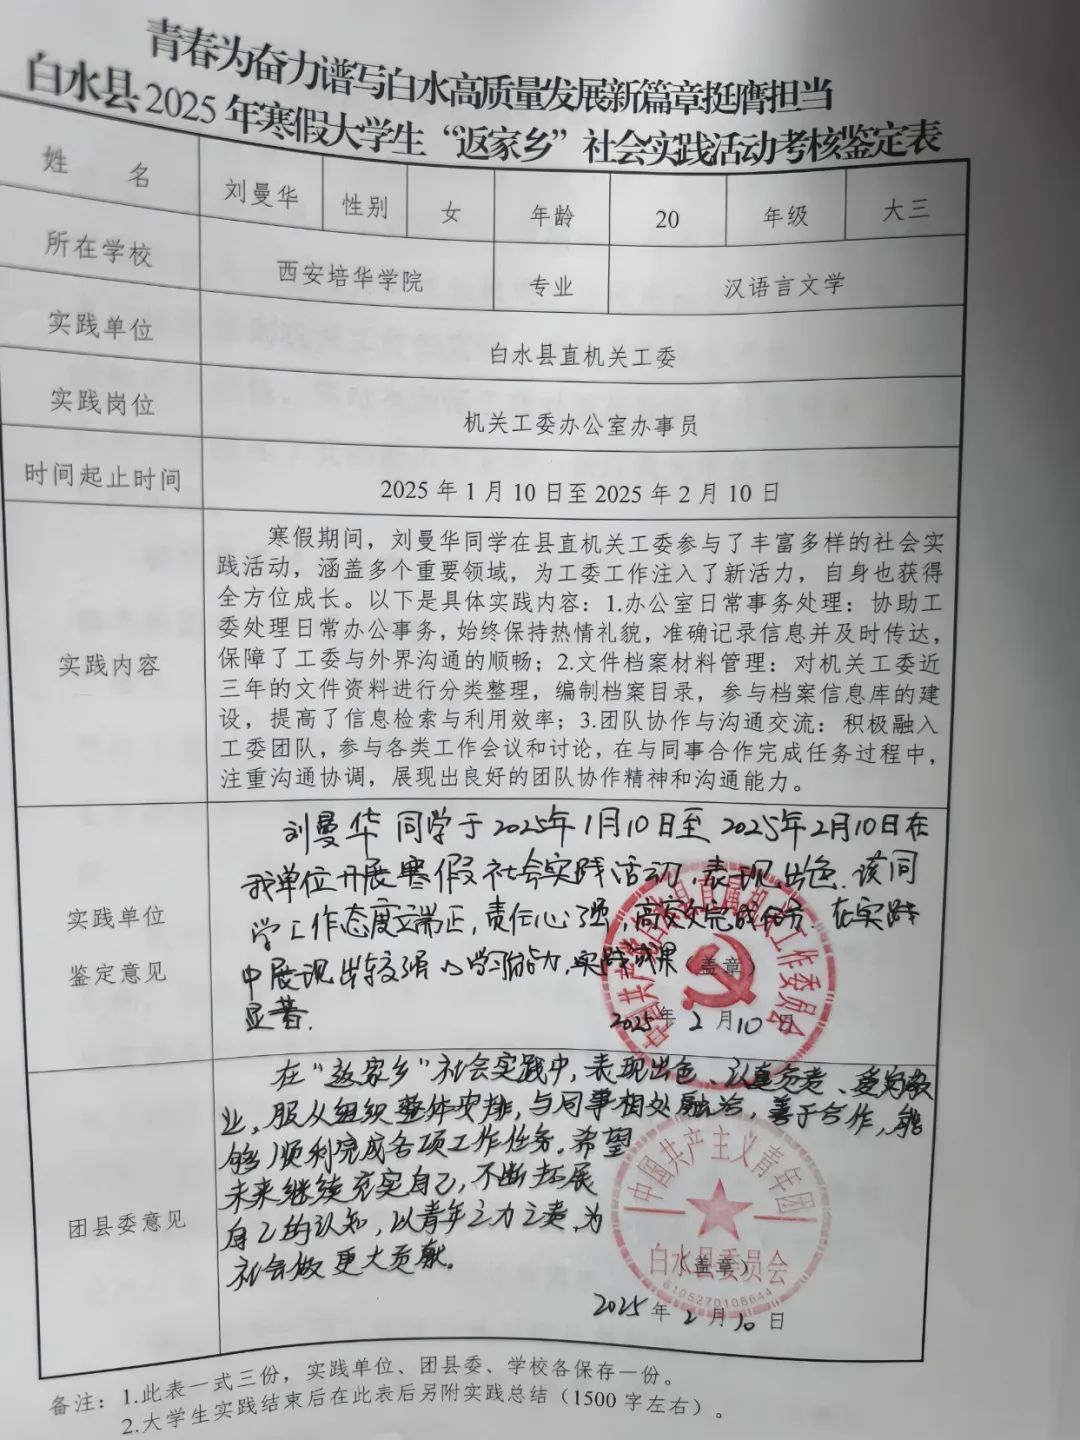 青春为奋力谱写白水高质量发展新篇章挺膺担当
白水县2025年寒假大学生“返家乡”社会实践活动考核鉴定表
姓 名 刘曼华 性别 女 年龄 20 年级 大三
所在学校 西安培华学院 专业 汉语言文学
实践单位 白水县直机关工委
实践岗位 机关工委办公室办事员
时间起止时间 2025年1月10日至2025年2月10日
实践内容
寒假期间，刘曼华同学在县直机关工委参与了丰富多样的社会实
践活动，涵盖多个重要领域，为工委工作注入了新活力，自身也获得
全方位成长。以下是具体实践内容：1.办公室日常事务处理：协助工
委处理日常办公事务，始终保持热情礼貌，准确记录信息并及时传达，
保障了工委与外界沟通的顺畅；2.文件档案材料管理：对机关工委近
三年的文件资料进行分类整理，编制档案目录，参与档案信息库的建
设，提高了信息检索与利用效率；3.团队协作与沟通交流：积极融入
工委团队，参与各类工作会议和讨论，在与同事合作完成任务过程中，
注重沟通协调，展现出良好的团队协作精神和沟通能力。
实践单位
鉴定意见
刘曼华同学于2025年1月10日至2025年2月10日在
我单位开展寒假社会实践活动，表现出色.该同
学工作态度端正，责任心强，高效完成任务.在实践
中展现出较强的学习能力，实践成果
显著.
（盖章）
2025年2月10日
中国共产党白水县直属机关工作委员会
团县委意见
在“返家乡”社会实践中，表现出色、认真负责、爱岗敬
业，服从组织整体安排，与同事相处融洽，善于合作，能
够顺利完成各项工作任务。希望
未来继续充实自己，不断拓展
自己的认知，以青年之力之责，为
社会做更大贡献。
中国共产主义青年团
白水县委员会
（盖章）
6105270108644
2025年2月10日
备注：1.此表一式三份，实践单位、团县委、学校各保存一份。
2.大学生实践结束后在此表后另附实践总结（1500字左右）。